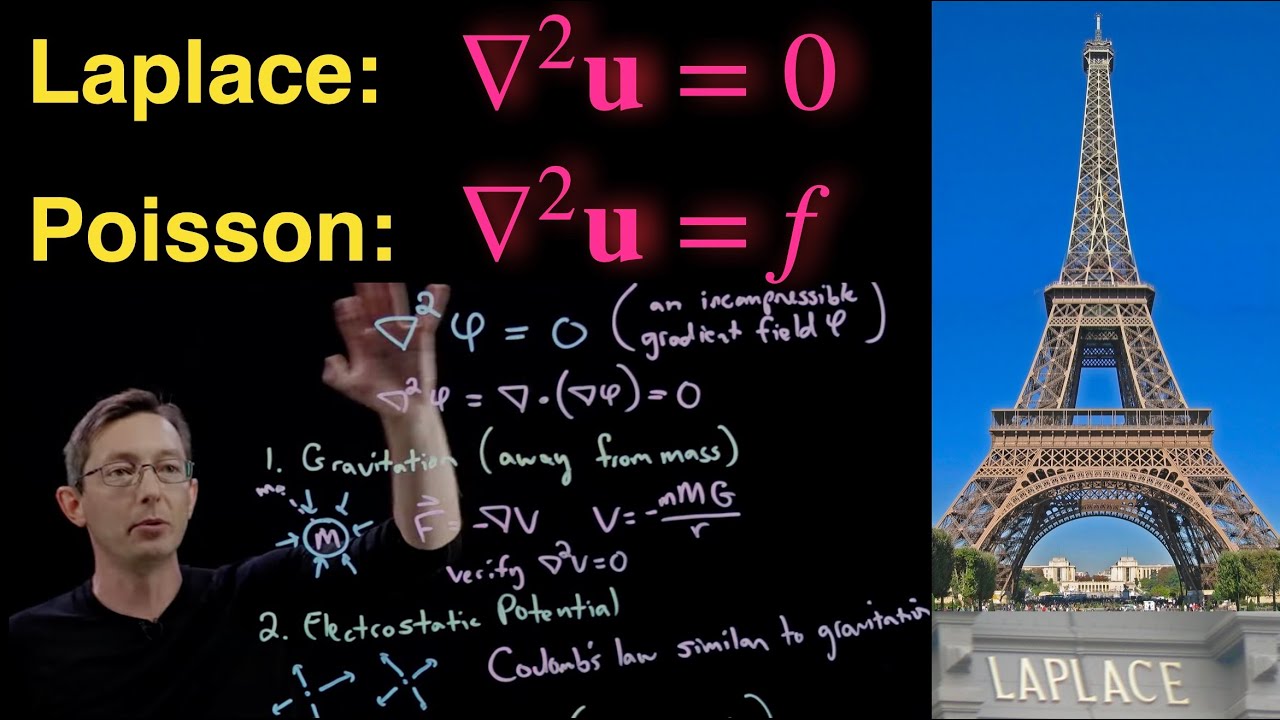 Laplace: ∇²u = 0
Poisson: ∇²u = f
∇²φ = 0 (an incompressible gradient field φ)
∇²φ = ∇·(∇φ) = 0
1. Gravitation (away from mass)
M
F⃗ = -∇V V = -mMG/r
verify ∇²V = 0
2. Electrostatic Potential
Coulomb's law similar to gravitation
LAPLACE